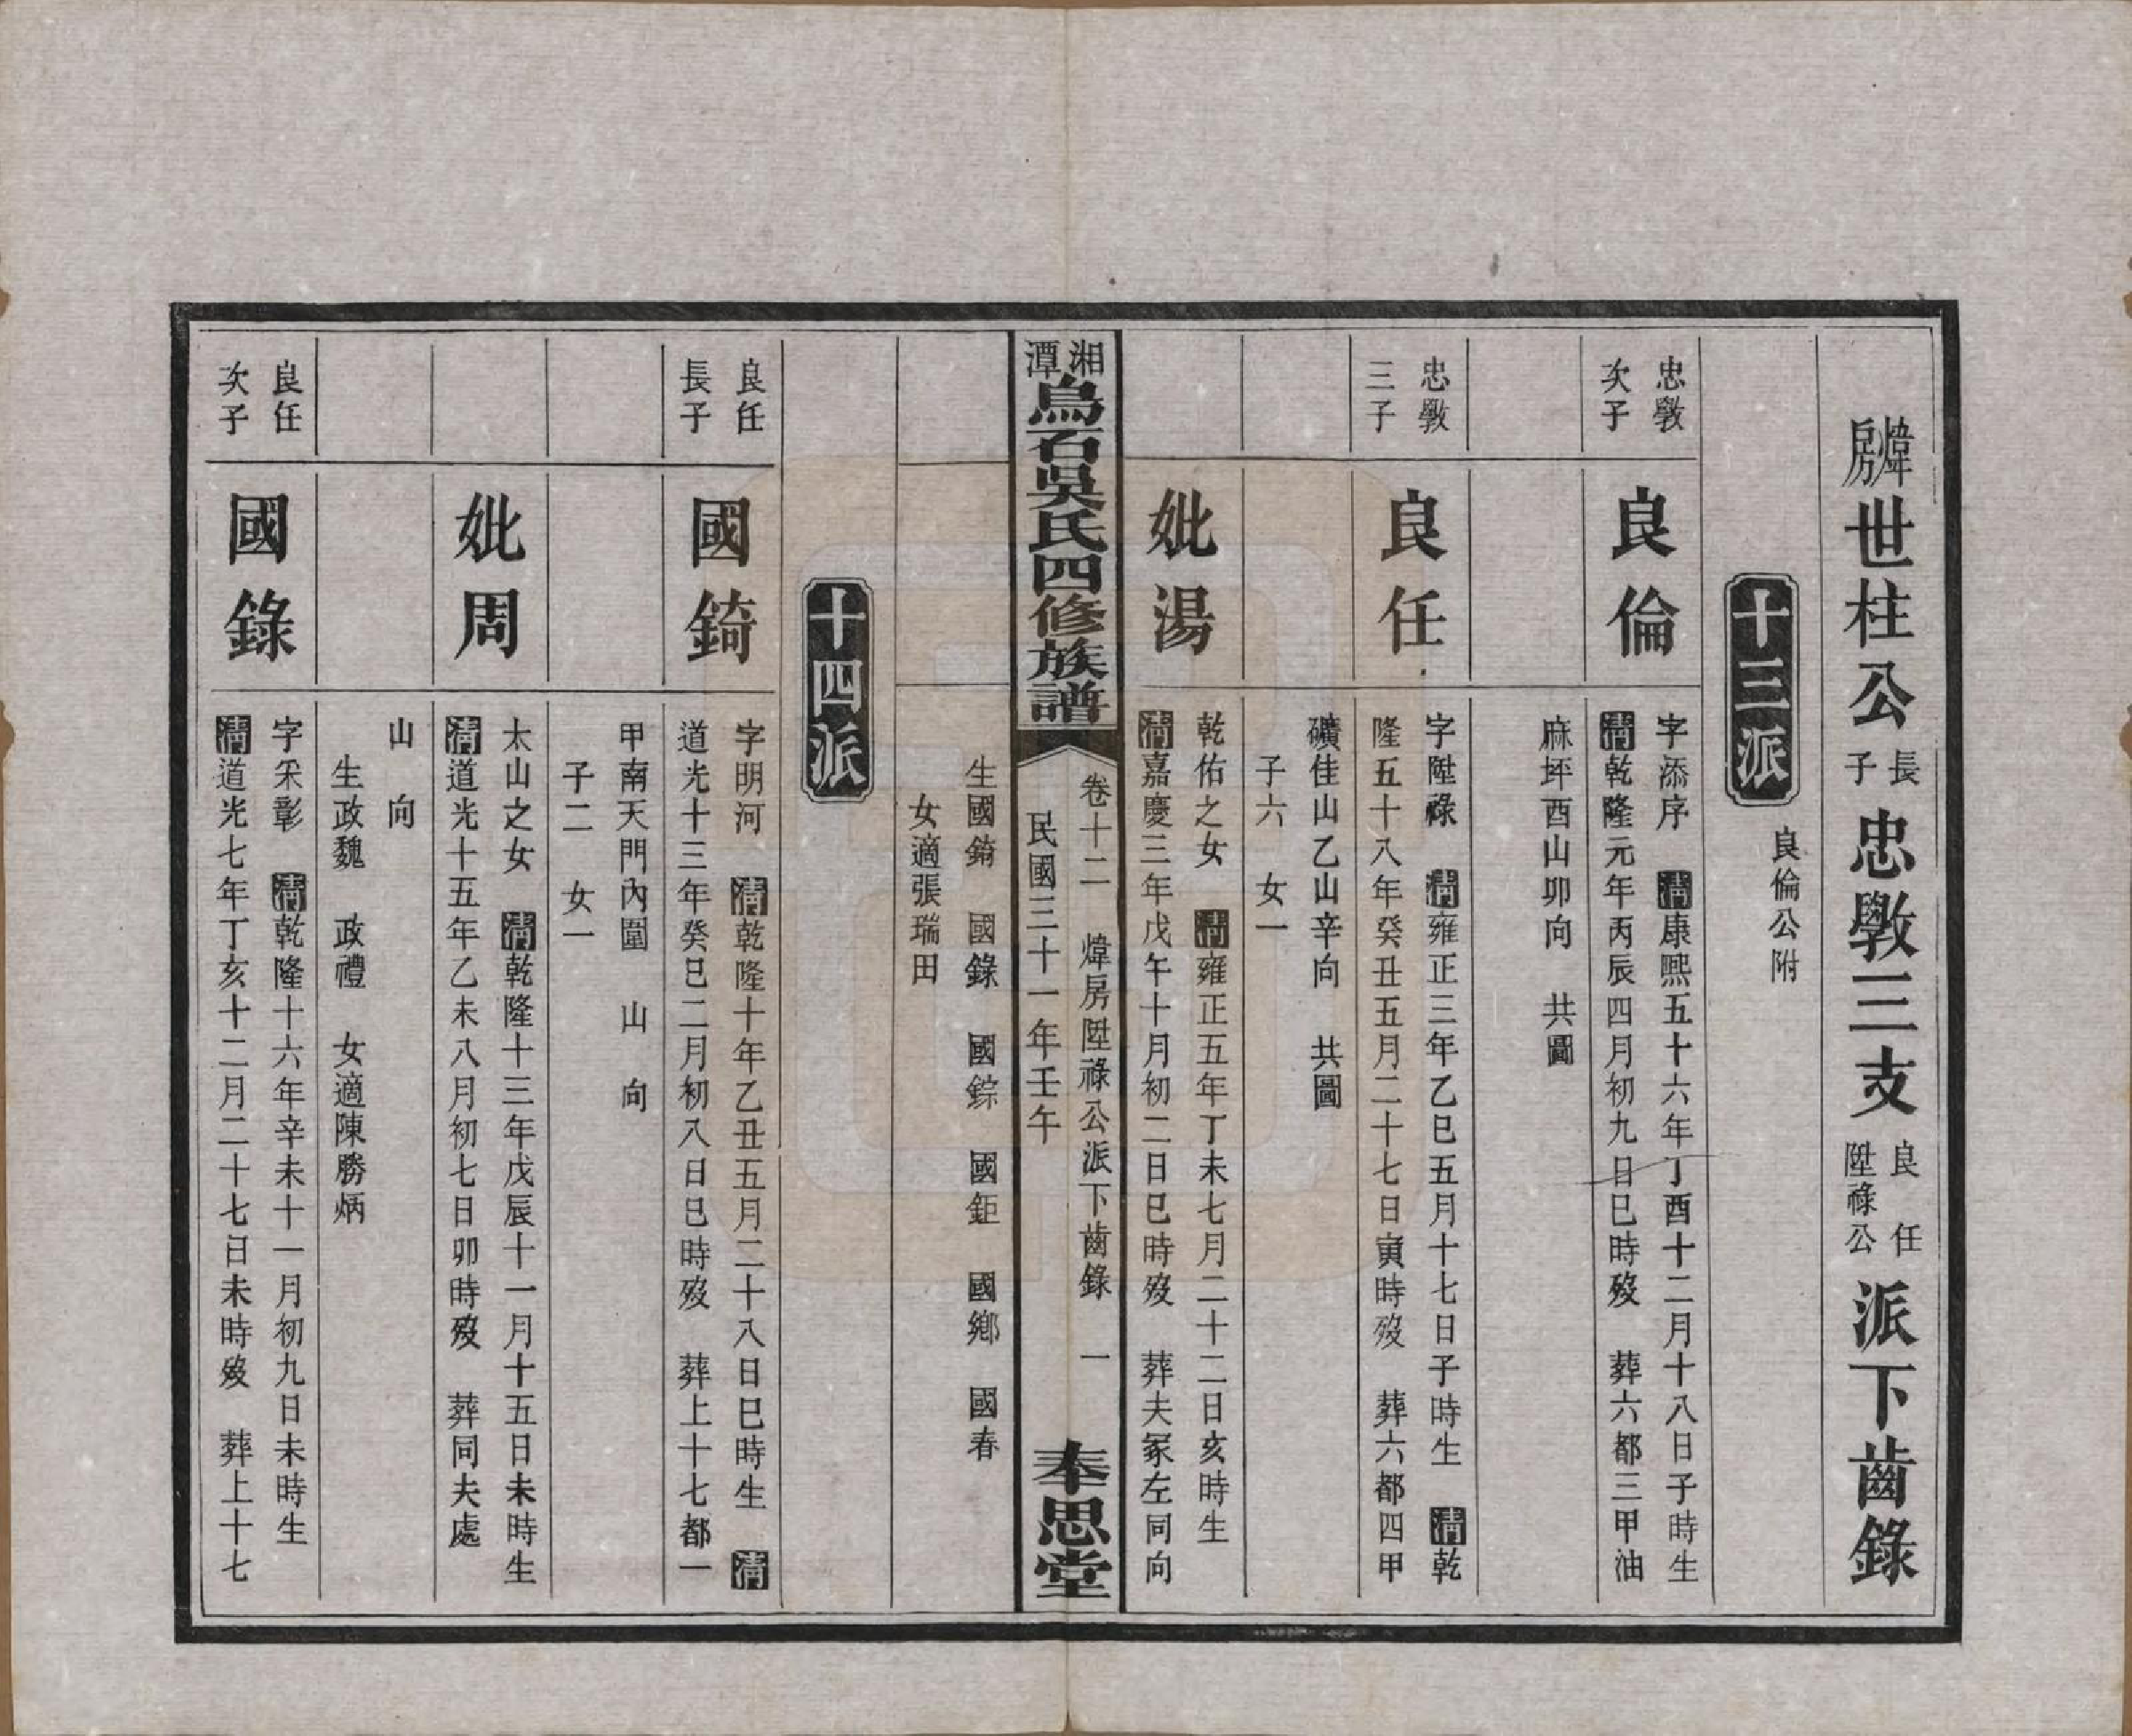 煒房世柱公長子忠斆三支良任陞祿公派下齒錄
十三派 良倫公附
忠斆次子
良倫
字添序 清康熙五十六年丁酉十二月十八日子時生
清乾隆元年丙辰四月初九日巳時歿 葬六都三甲油
麻坪酉山卯向 共圖
忠斆三子
良任
字陞祿 清雍正三年乙巳五月十七日子時生 清乾
隆五十八年癸丑五月二十七日寅時歿 葬六都四甲
礦佳山乙山辛向 共圖
子六 女一
妣湯
乾佑之女 清雍正五年丁未七月二十二日亥時生
清嘉慶三年戊午十月初二日巳時歿 葬夫冢左同向
湘潭烏石吳氏四修族譜
卷十二 煒房陞祿公派下齒錄 一
民國三十一年壬午
奉思堂
生國錡 國錄 國錝 國鉅 國鄉 國春
女適張瑞田
十四派
良任長子
國錡
字明河 清乾隆十年乙丑五月二十八日巳時生 清
道光十三年癸巳二月初八日巳時歿 葬上十七都一
甲南天門內圍 山 向
子二 女一
妣周
太山之女 清乾隆十三年戊辰十一月十五日未時生
清道光十五年乙未八月初七日卯時歿 葬同夫處
山 向
生政魏 政禮 女適陳勝炳
良任次子
國錄
字釆彰 清乾隆十六年辛未十一月初九日未時生
清道光七年丁亥十二月二十七日未時歿 葬上十七